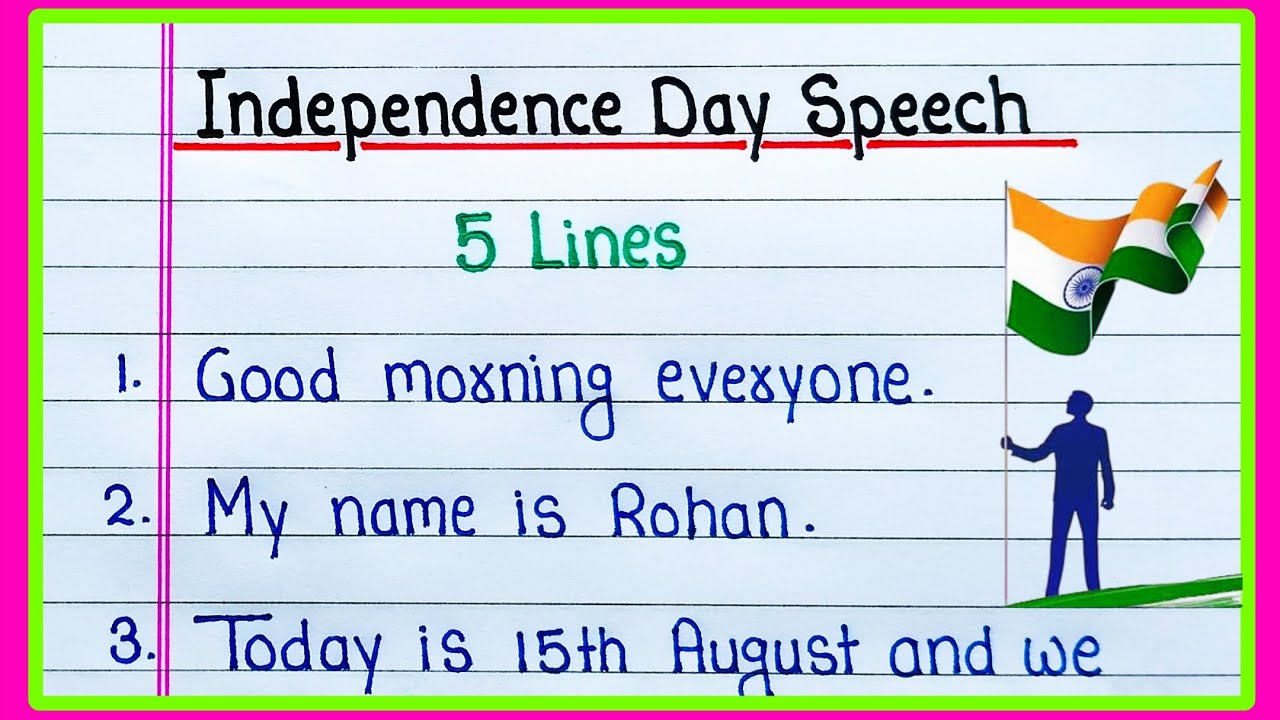 Independence Day Speech
5 Lines
1. Good morning everyone.
2. My name is Rohan.
3. Today is 15th August and we